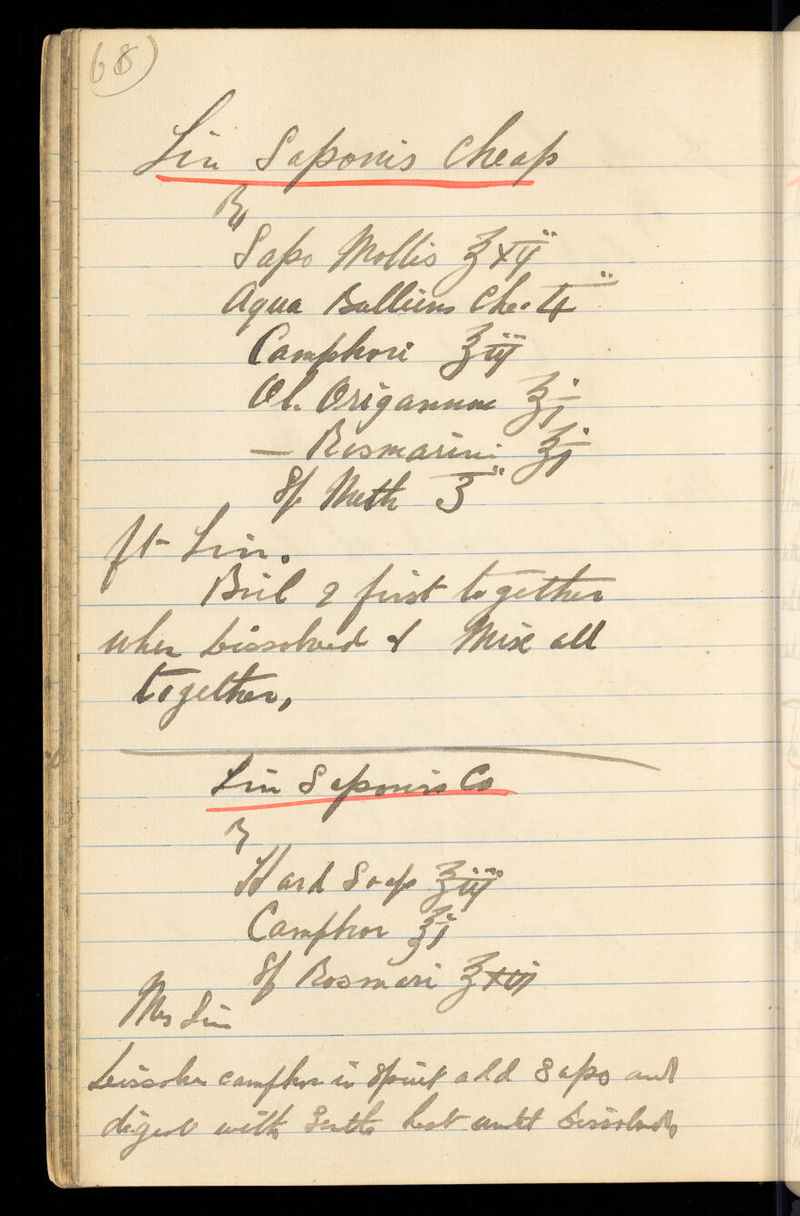 68)
Lin Saponis Cheap
℞
Sapo Mollis ℥xij
Aqua Bulliens
Camphori ℥iij
Ol. Origanum ℥j
— Rosmarini ℥j
Sp Meth
ft Lin.
Boil 2 first together
when Dissolved & Mix all
together,
Lin Saponis Co
℞
Hard Soap ℥iij
Camphor ℥j
Sp Rosmari ℥xvj
Lin
Dissolve camphor in Spirit add Sapo and
digest with Gentle heat until Dissolved,